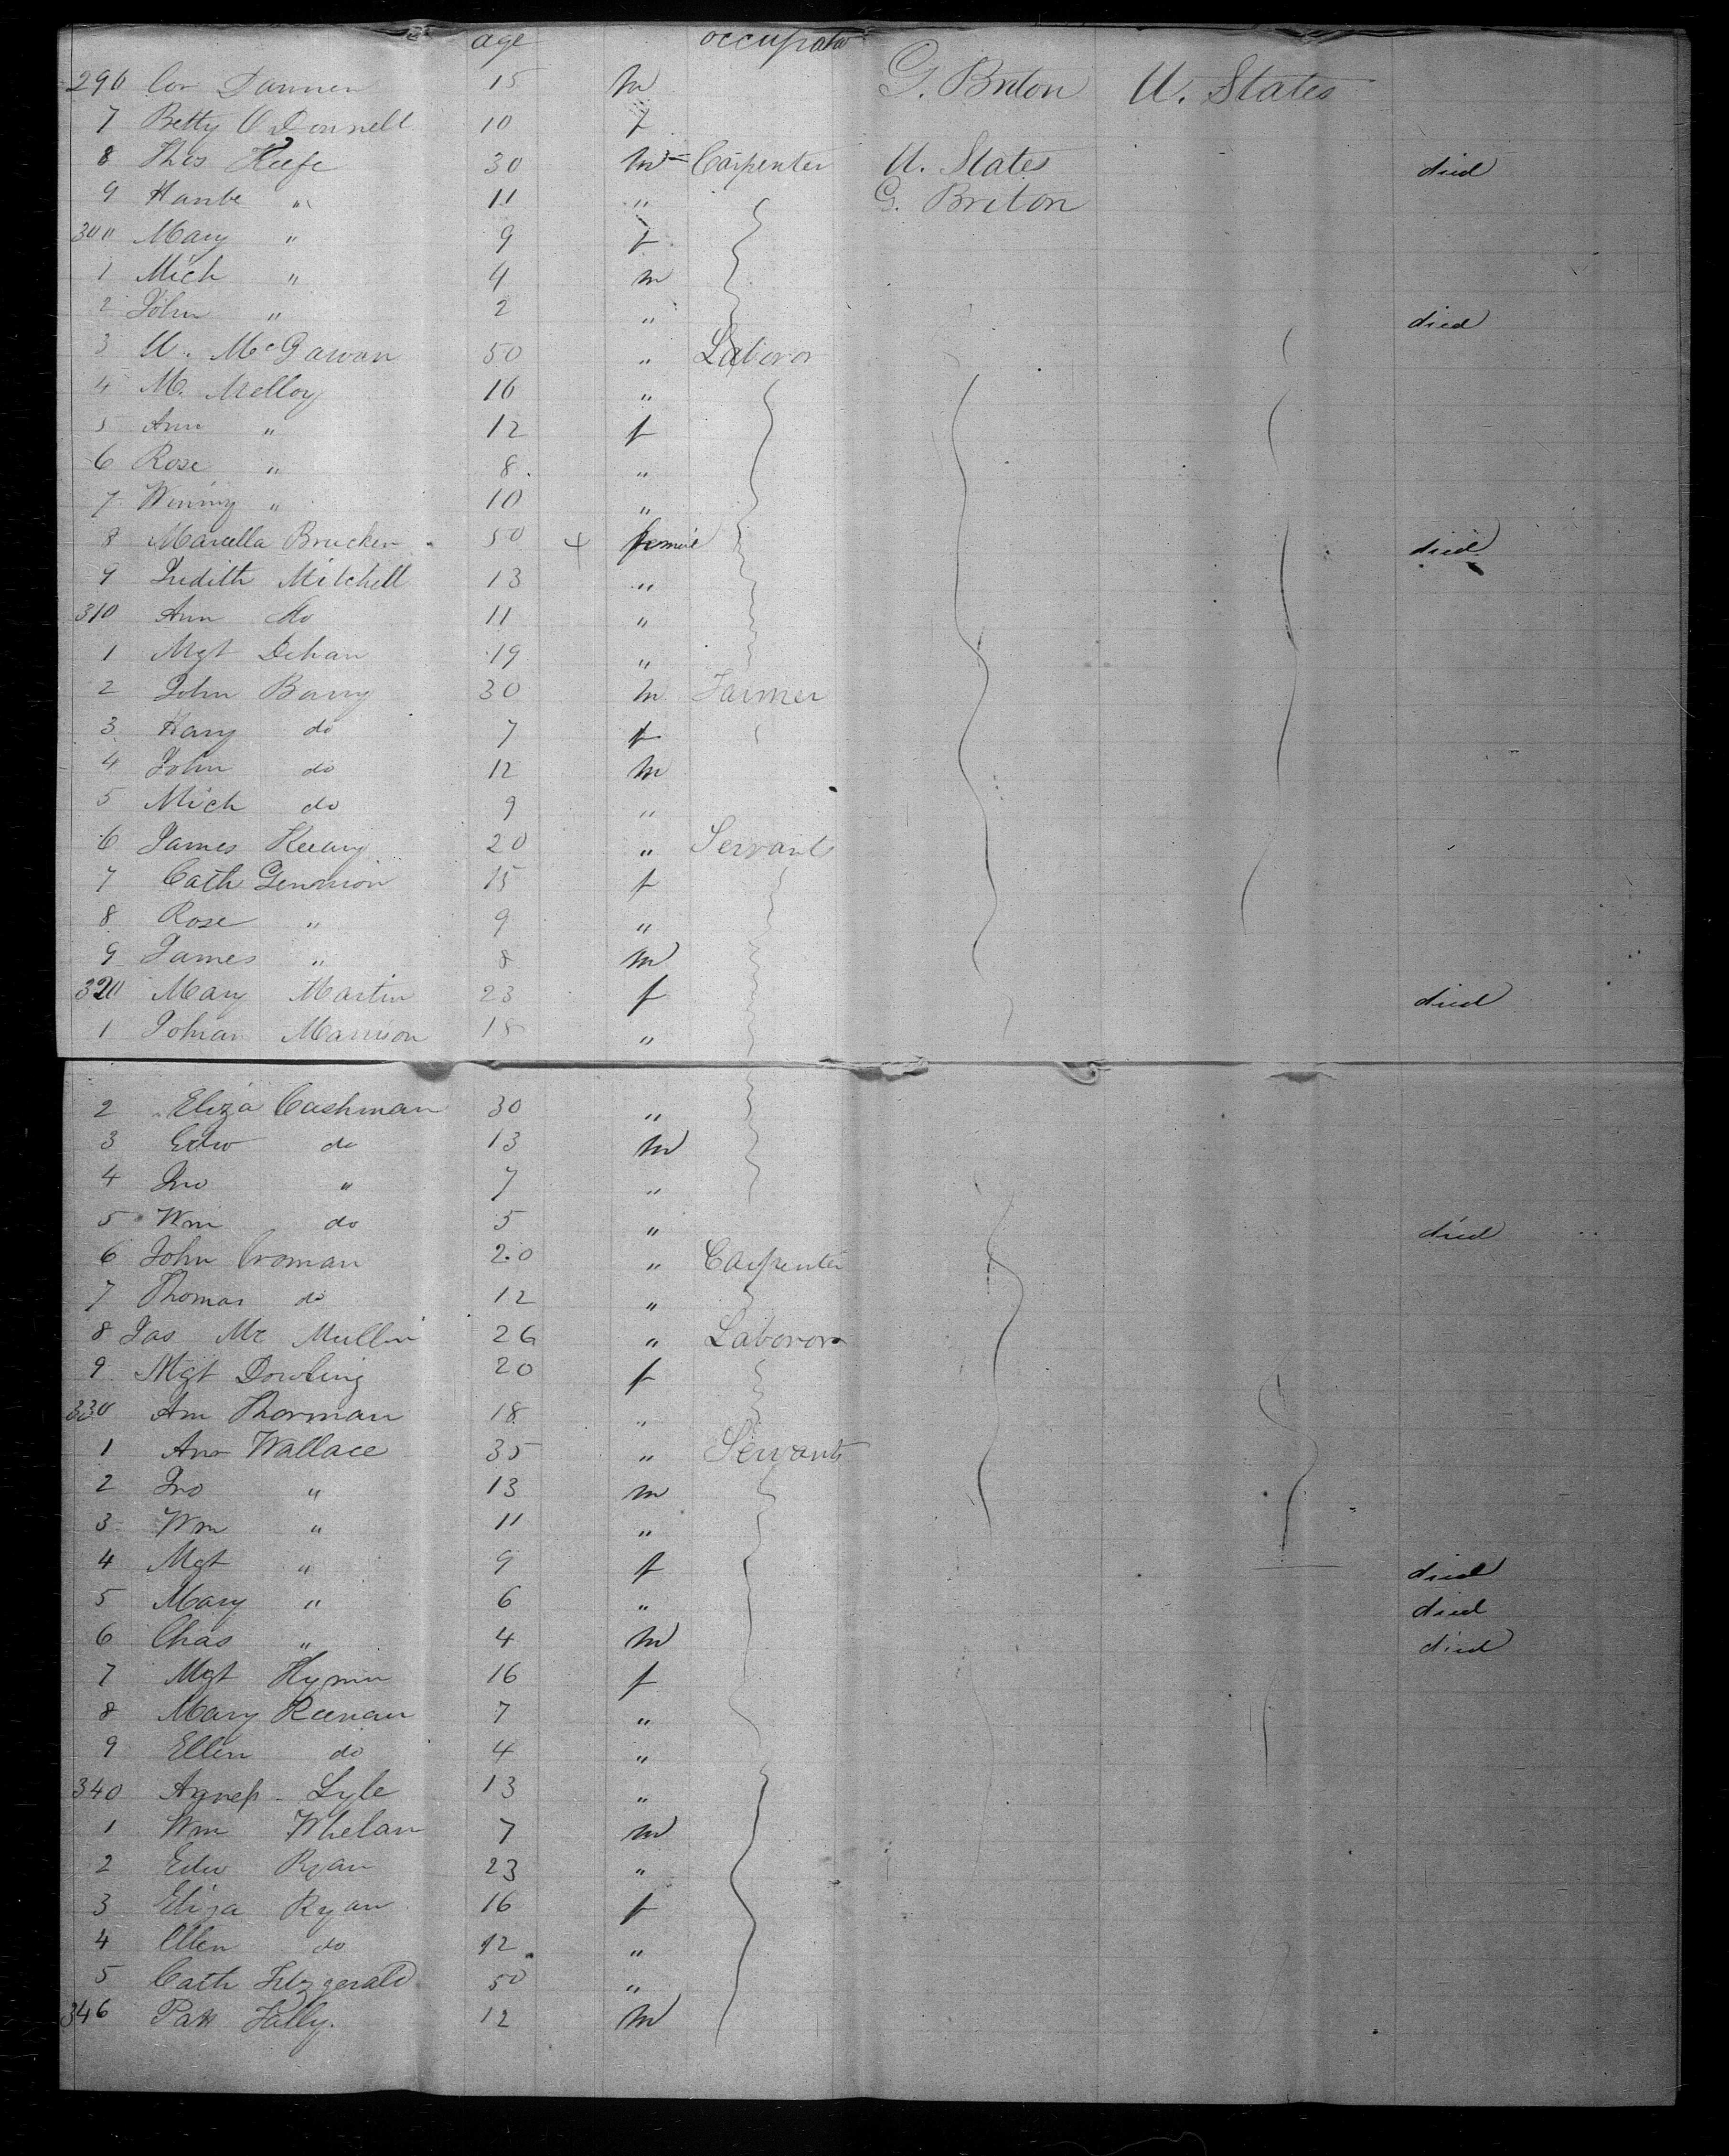 age occupatn
296 Con Danner 15 m G. Briton U. States
7 Betty O Donnell 10 f
8 Thos Keefe 30 m = Carpenter U. States died
9 " 11 " G. Briton
300 Mary " 9 f
1 Mich " 4 m
2 John " 2 " died
3 U. McGawan 50 " Laboror
4 M. Melloy 16 "
5 Ann " 12 f
6 Rose " 8 "
7 Winny " 10 "
8 Marcella Brucker 50 + femail died
9 Judith Mitchell 13 "
310 Ann do 11 "
1 Mgt Dehan 19 "
2 John Barry 30 m Farmer
3 do 7 f
4 John do 12 m
5 Mich do 9 "
6 James 20 " Servants
7 Cath 15 f
8 Rose " 9 "
9 James " 8 m
320 Mary Martin 23 f died
1 Johan Marrison 18 "
2 Eliza Cashman 30 "
3 Edw do 13 m
4 Jno " 7 "
5 Wm do 5 " died
6 John Croman 20 " Carpenter
7 Thomas do 12 "
8 Jas Mc Mullin 26 " Laborors
9 Mgt Dowling 20 f
330 Ann Thorman 18 "
1 Ann Wallace 35 " Servants
2 Jno " 13 m
3 Wm " 11 "
4 Mgt " 9 f died
5 Mary " 6 " died
6 Chas " 4 m died
7 Mgt Hynn 16 f
8 Mary Keenan 7 "
9 Ellen do 4 "
340 Agness Lyle 13 "
1 Wm Whelan 7 m
2 Edw Ryan 23 "
3 Eliza Ryan 16 f
4 Ellen do 12 "
5 Cath Fitzgerald 50 "
346 Patt Fally. 12 m